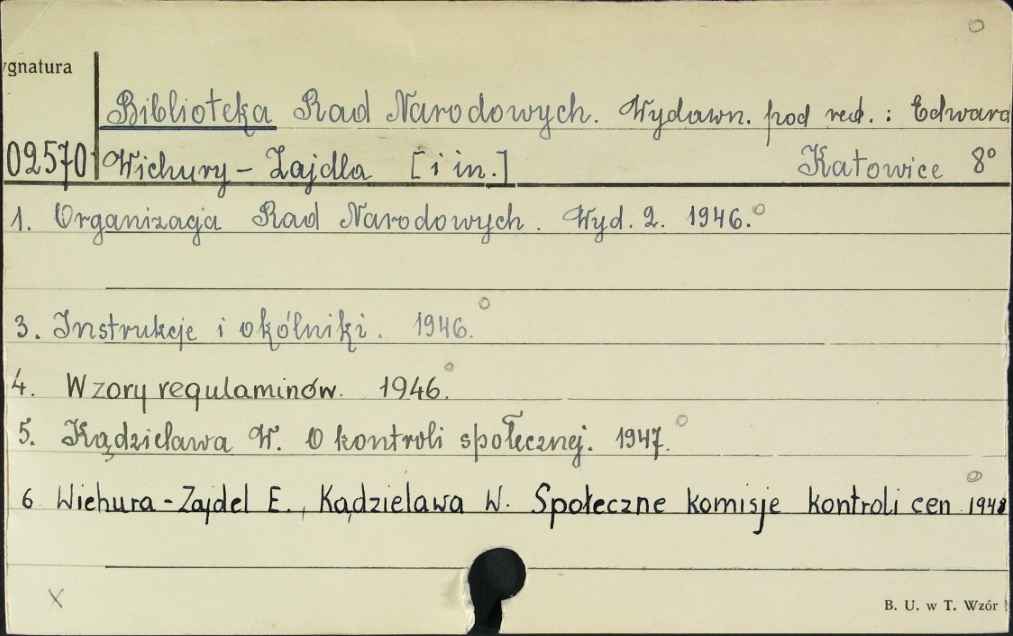 ygnatura
Biblioteka Rad Narodowych. Wydawn. pod red.: Edward
025701 Wichury-Zajdla [i in.] Katowice 8°
1. Organizacja Rad Narodowych. Wyd. 2. 1946.
3. Instrukcje i okólniki. 1946.
4. Wzory regulaminów. 1946.
5. Kądzielawa W. O kontroli społecznej. 1947.
6 Wichura-Zajdel E., Kądzielawa W. Społeczne komisje kontroli cen 1948
x
B. U. w T. Wzór